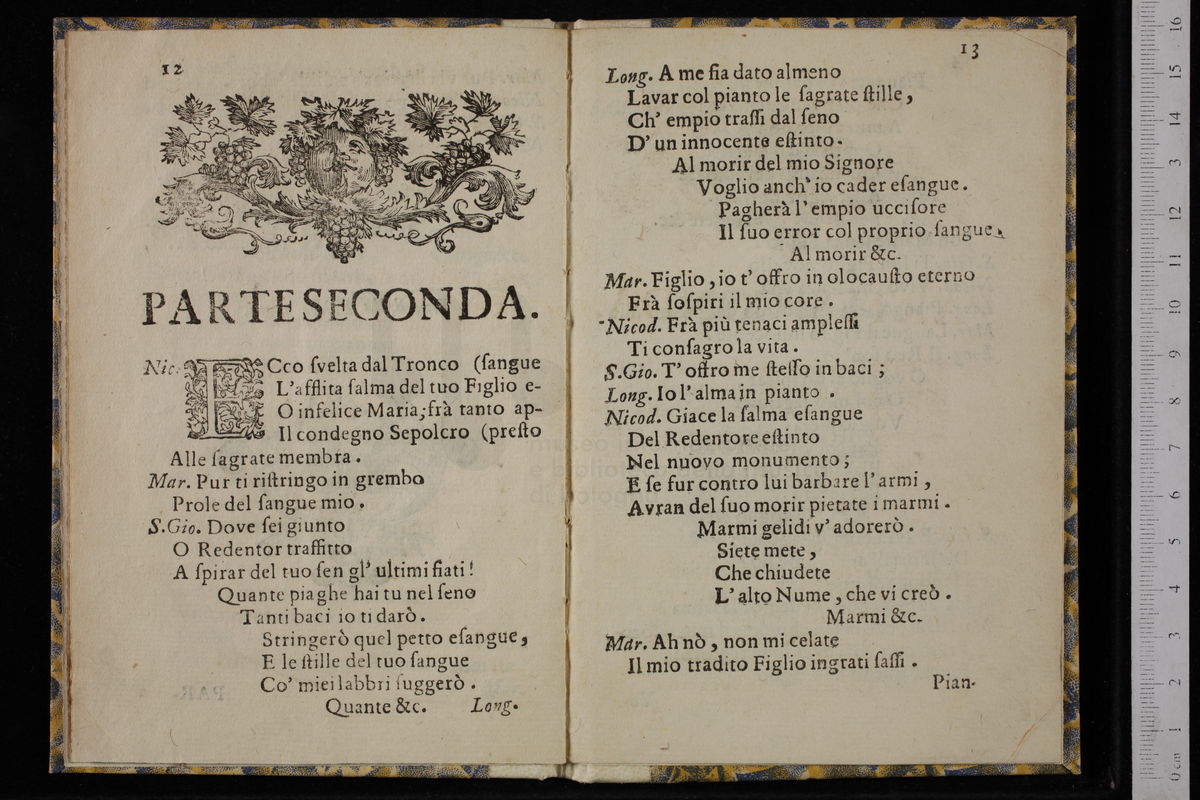 12
PARTE SECONDA.
Nic. ECco ſvelta dal Tronco (ſangue
L'afflita ſalma del tuo Figlio e-
O infelice Maria; frà tanto ap-
Il condegno Sepolcro (preſto
Alle ſagrate membra.
Mar. Pur ti riſtringo in grembo
Prole del ſangue mio.
S.Gio. Dove ſei giunto
O Redentor traffitto
A ſpirar del tuo ſen gl' ultimi fiati!
Quante piaghe hai tu nel ſeno
Tanti baci io ti darò.
Stringerò quel petto eſangue,
E le ſtille del tuo ſangue
Co' miei labbri ſuggerò.
Quante &c. Long.
13
Long. A me ſia dato almeno
Lavar col pianto le ſagrate ſtille,
Ch' empio traſſi dal ſeno
D' un innocente eſtinto.
Al morir del mio Signore
Voglio anch' io cader eſangue.
Pagherà l' empio ucciſore
Il ſuo error col proprio ſangue.
Al morir &c.
Mar. Figlio, io t' offro in olocauſto eterno
Frà ſoſpiri il mio core.
Nicod. Frà più tenaci ampleſſi
Ti conſagro la vita.
S.Gio. T' offro me ſteſſo in baci;
Long. Io l' alma in pianto.
Nicod. Giace la ſalma eſangue
Del Redentore eſtinto
Nel nuovo monumento;
E ſe fur contro lui barbare l' armi,
Avran del ſuo morir pietate i marmi.
Marmi gelidi v' adorerò.
Siete mete,
Che chiudete
L' alto Nume, che vi creò.
Marmi &c.
Mar. Ah nò, non mi celate
Il mio tradito Figlio ingrati ſaſſi.
Pian-
0 cm 1 2 3 4 5 6 7 8 9 10 11 12 3 14 15 16